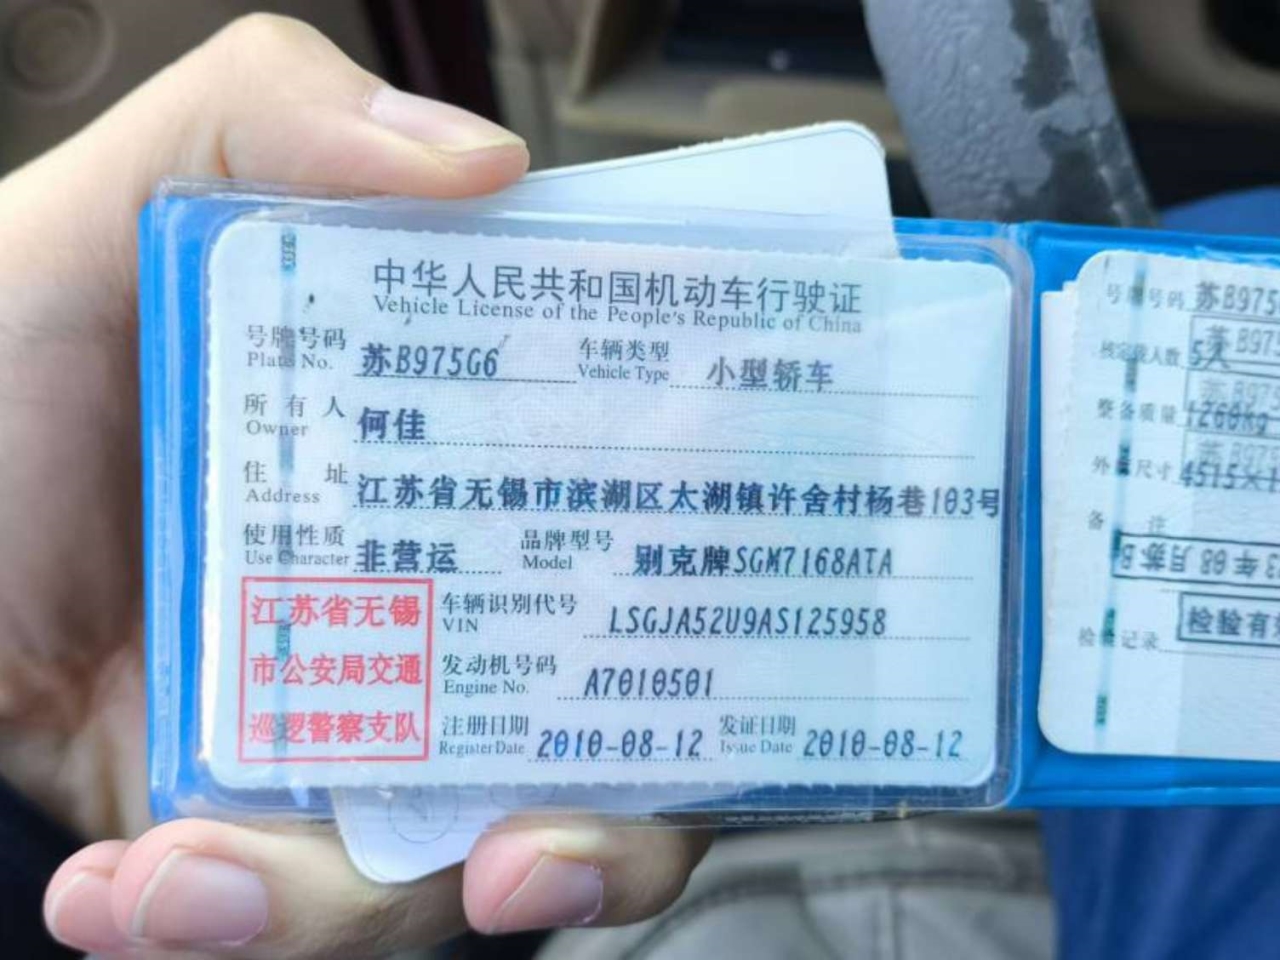 中华人民共和国机动车行驶证
Vehicle License of the People's Republic of China
号牌号码 苏B975G6 车辆类型 小型轿车
Plate No. Vehicle Type
所有人 何佳
Owner
住址 江苏省无锡市滨湖区太湖镇许舍村杨巷103号
Address
使用性质 非营运 品牌型号 别克牌SGM7168ATA
Use Character Model
江苏省无锡
市公安局交通
巡逻警察支队
车辆识别代号 LSGJA52U9AS125958
VIN
发动机号码 A7010501
Engine No.
注册日期 2010-08-12 发证日期 2010-08-12
Register Date Issue Date
号牌号码 苏B975
苏B975
核定载人数 5人
苏B975
整备质量 1260kg
苏B975
外廓尺寸 4515×1
备注
年08月苏B
检验记录 检验有